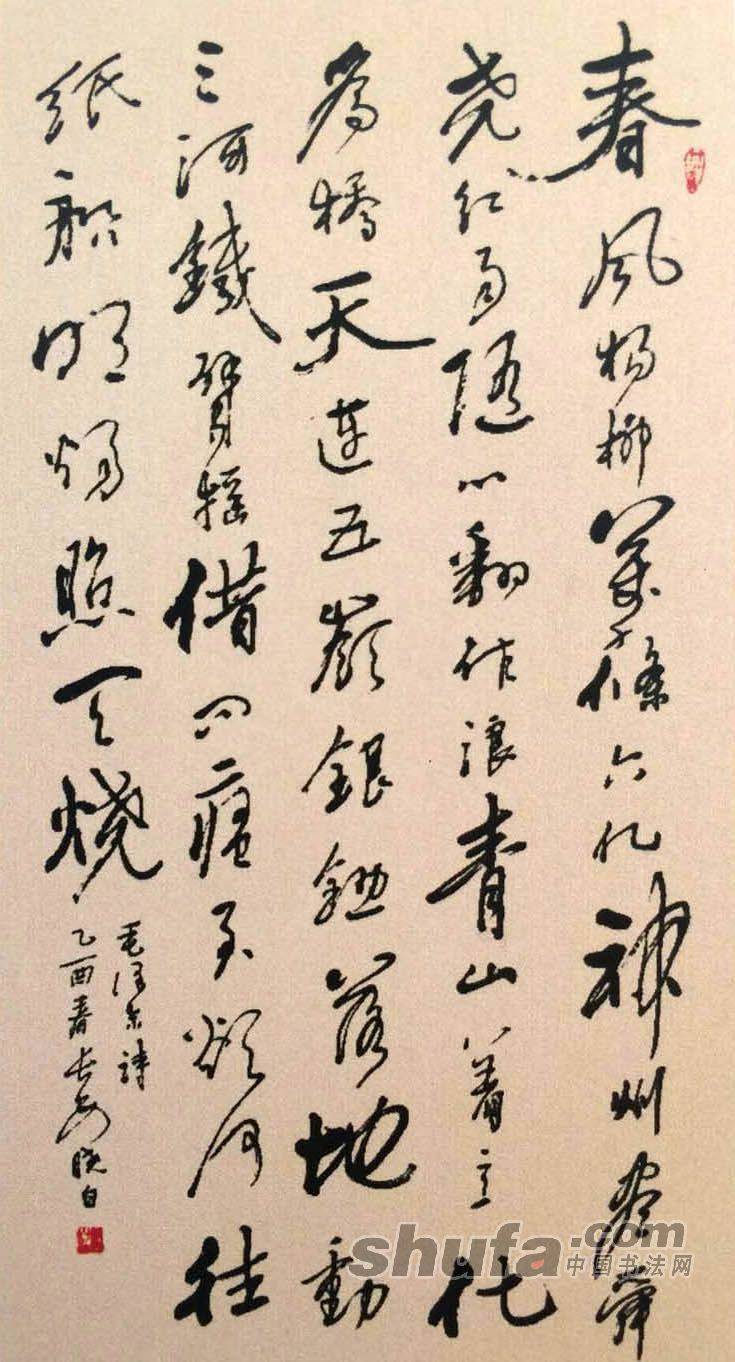 春風杨柳萬千條六亿神州盡舜
尧红雨随心翻作浪青山着意化
為橋天连五嶺銀鋤落地動
三河鐵臂摇借问瘟君欲何往
纸船明烛照天烧
毛泽东詩
乙酉春长安晓白
shufa.com
中国书法网